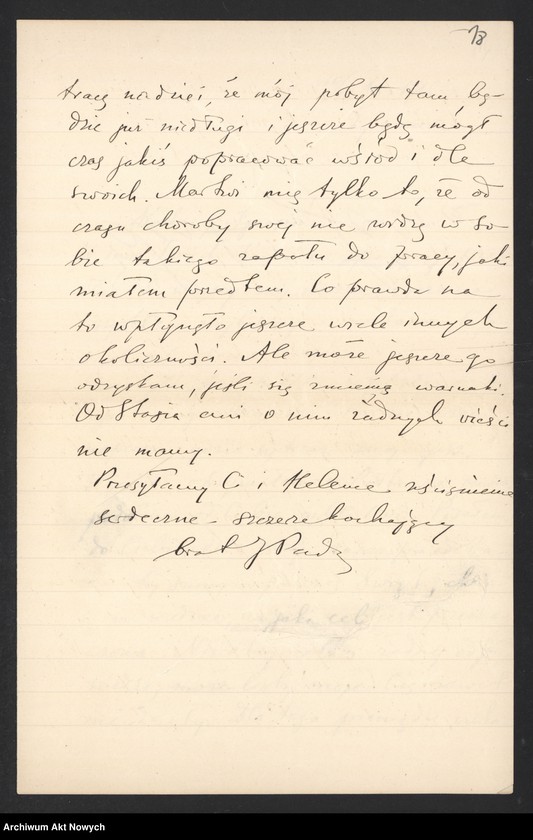 18
tracę nadziei, że mój pobyt tam bę-
dzie już niedługi i jeszcze będę mógł
czas jakiś popracować wśród i dla
swoich. Martwi mię tylko to, że od
czasu choroby swej nie widzę w so-
bie takiego zapału do pracy, jaki
miałem przedtem. Co prawda na
to wpłynęło jeszcze wiele innych
okoliczności. Ale może jeszcze go
odzyskam, jeśli się zmienią warunki.
Od Stasia ani o nim żadnych wieści
nie mamy.
Przesyłamy Ci i Helenie uściśnienie
serdeczne - szczerze kochający
brat J
Archiwum Akt Nowych